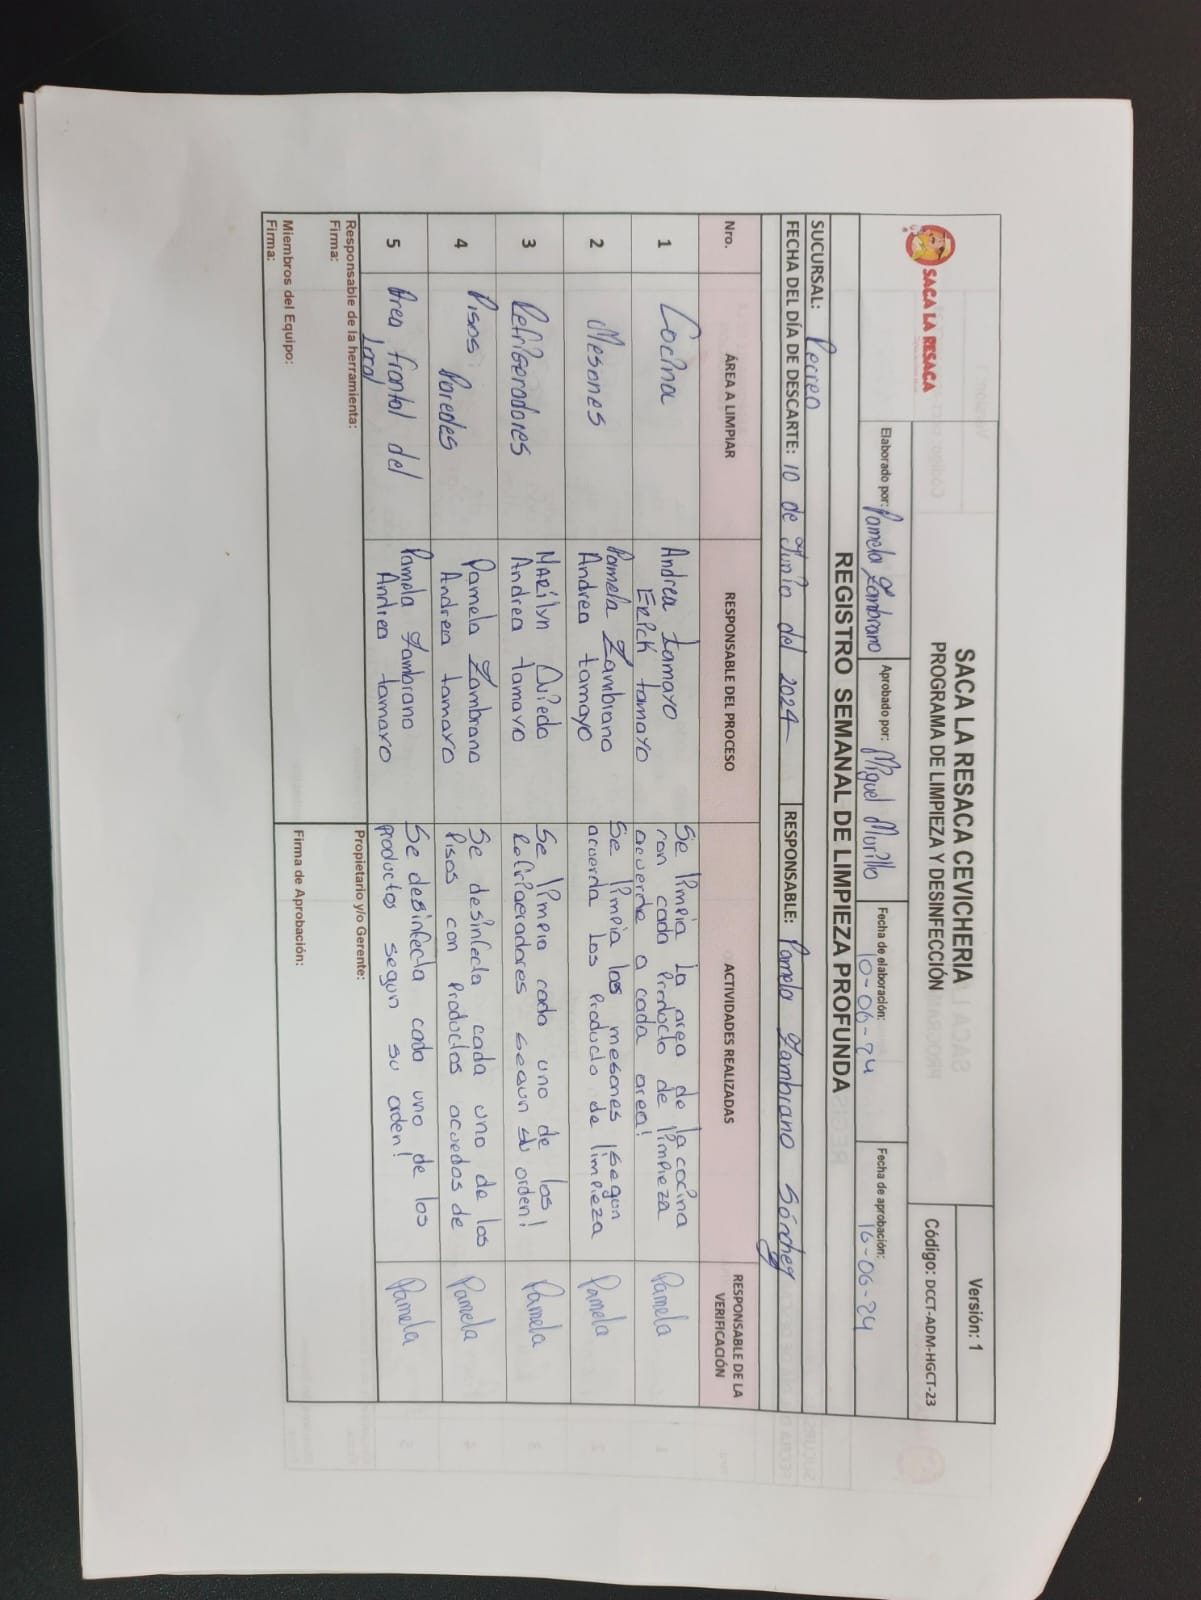 SACA LA RESACA
SACA LA RESACA CEVICHERIA
PROGRAMA DE LIMPIEZA Y DESINFECCIÓN
Versión: 1
Código: DCCT-ADM-HGCT-23
Elaborado por: Pamela Zambrano
Aprobado por: Miguel Murillo
Fecha de elaboración:
10-06-24
Fecha de aprobación:
16-06-24
REGISTRO SEMANAL DE LIMPIEZA PROFUNDA
SUCURSAL: Recreo
FECHA DEL DÍA DE DESCARTE: 10 de Junio del 2024
RESPONSABLE: Pamela Zambrano Sánchez
Nro.
ÁREA A LIMPIAR
RESPONSABLE DEL PROCESO
ACTIVIDADES REALIZADAS
RESPONSABLE DE LA
VERIFICACIÓN
1
Cocina
Andrea tamayo
Erick tamayo
Se limpia la area de la cocina
con cada Producto de limpieza
acuerdo a cada area!
Pamela
2
Mesones
Pamela Zambrano
Andrea tamayo
Se limpia los mesones segun
acuerda los Producto de limpieza
Pamela
3
Refrigeradores
Marilyn Oviedo
Andrea tamayo
Se limpia cada uno de los
Refrigeradores segun su orden!
Pamela
4
Pisos
Paredes
Pamela Zambrano
Andrea tamayo
Se desinfecta cada uno de los
Pisos con Productos acuedos de
Pamela
5
Area frontal del
local
Pamela Zambrano
Andrea tamayo
Se desinfecta cada uno de los
productos segun su orden!
Pamela
Responsable de la herramienta:
Firma:
Propietario y/o Gerente:
Miembros del Equipo:
Firma:
Firma de Aprobación: